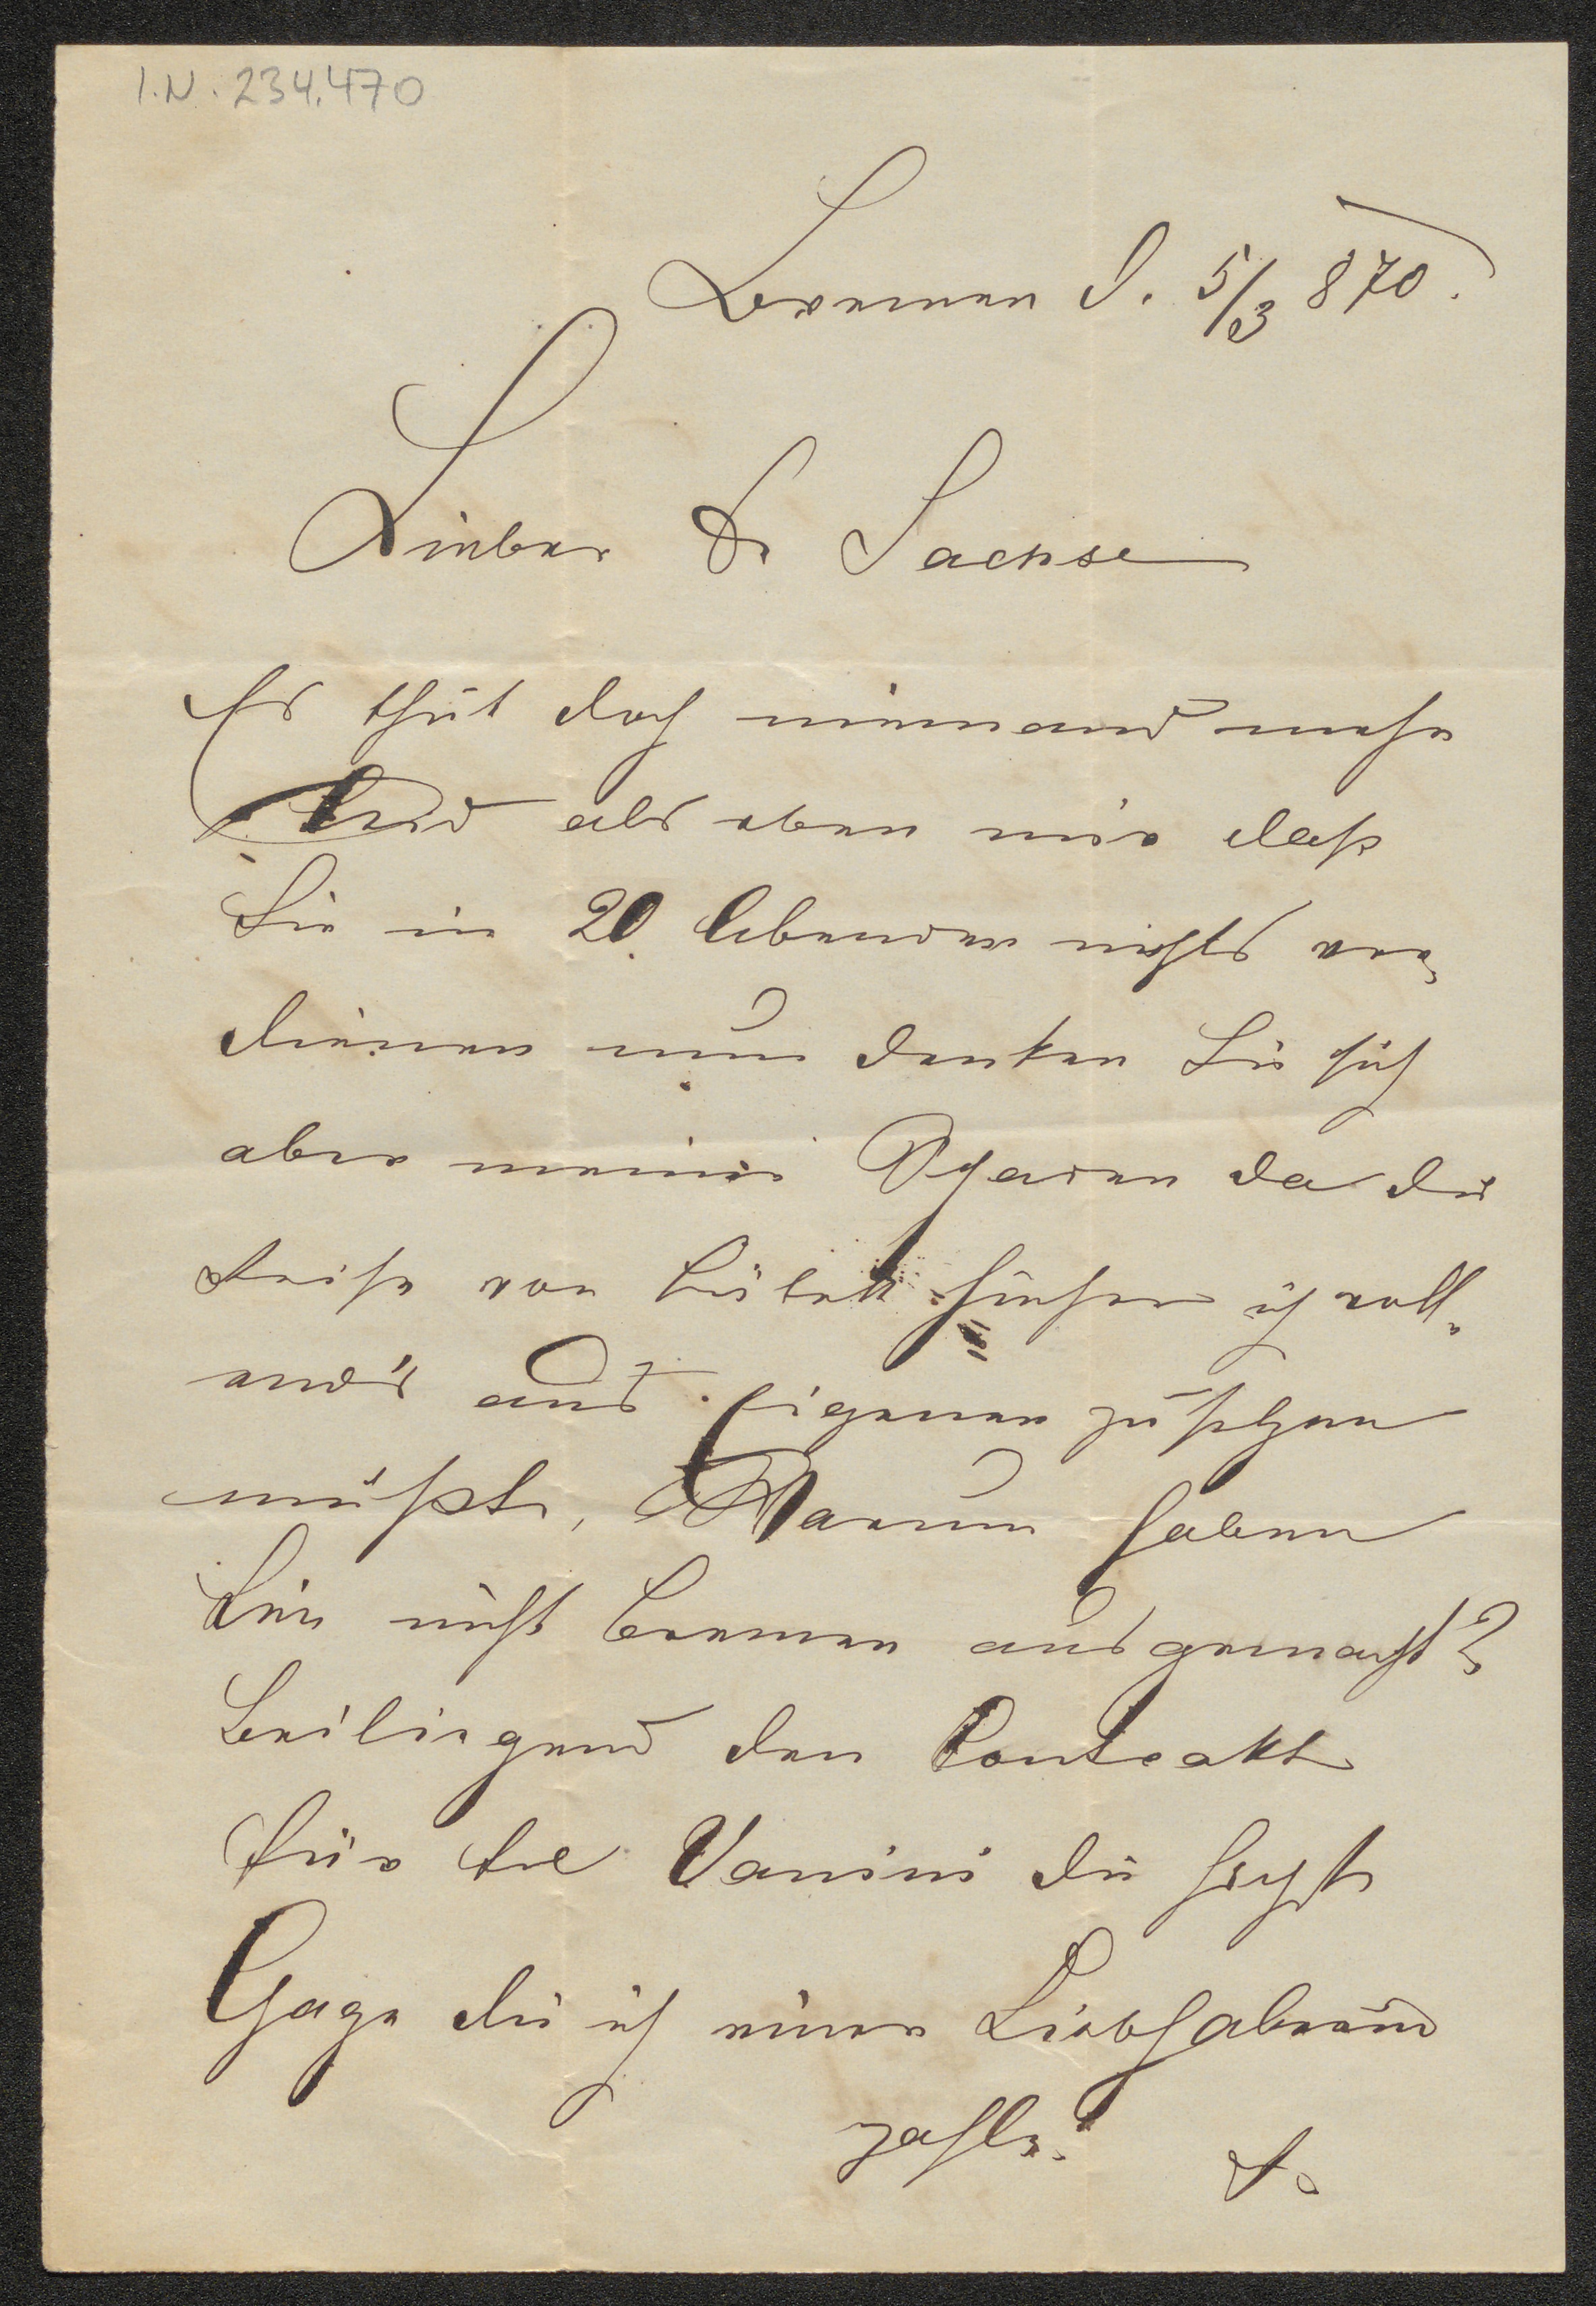 I.N. 234.470
Bremen d. 5/3 870.
Lieber Dr Sachse
Es thut doch niemand mehr
Leid als eben mir daß
Sie in 20 Abenden nichts ver-
dienen nun denken Sie sich
aber meinen Schaden da die
Reise von hierher ich voll-
ends aus Eigenen zusetzen
mußte, Warum haben
Sie nicht Bremen ausgemacht?
Beiliegend den Contrakt
für Frl Vanini die höchste
Gage die ich einer Liebhaberin
zahle.